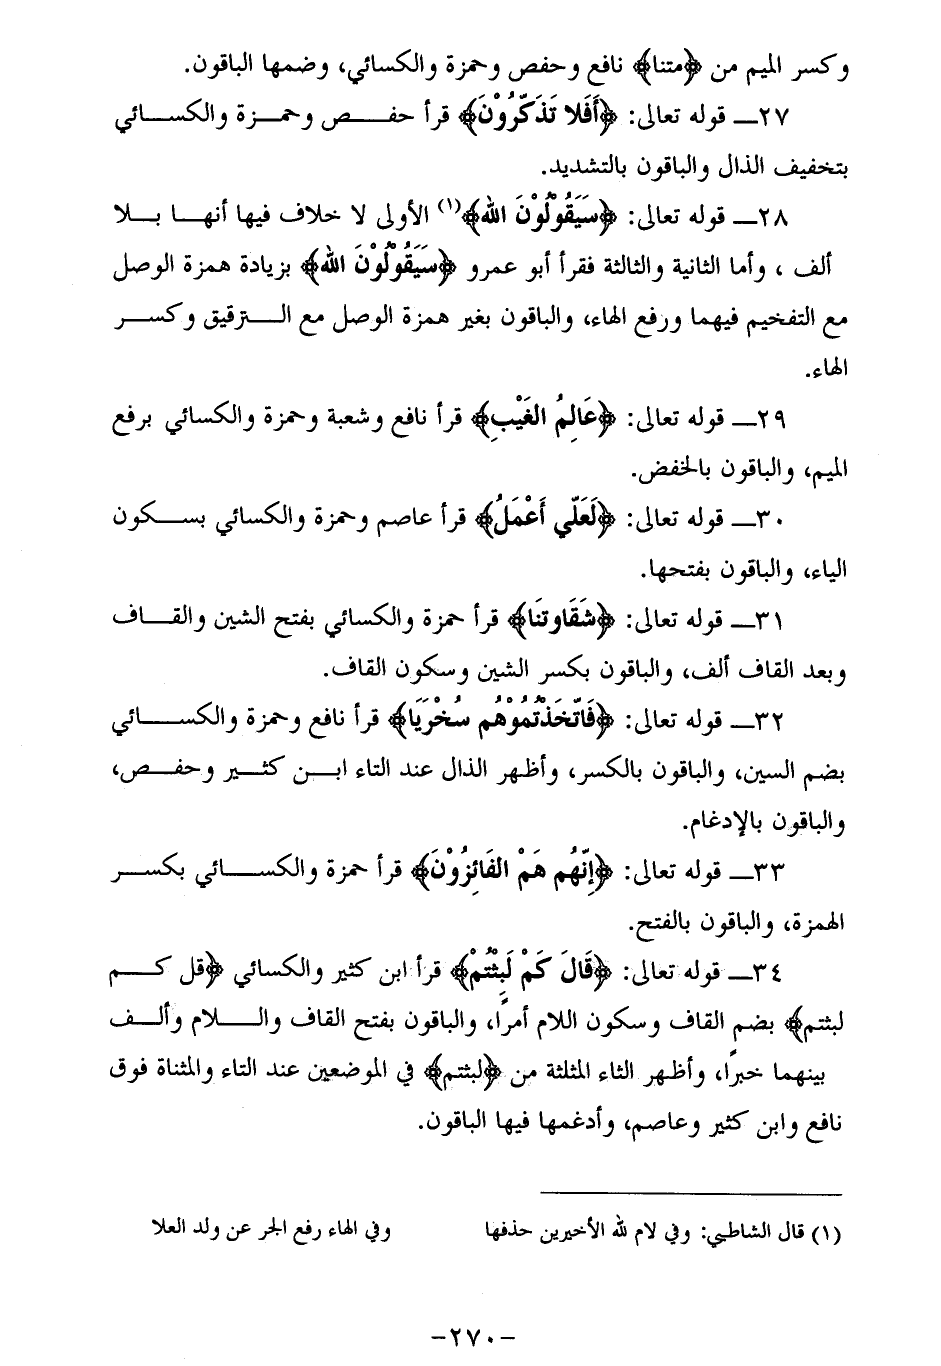 وكسر الميم من ﴿متنا﴾ نافع وحفص وحمزة والكسائي، وضمها الباقون.
٢٧ــ قوله تعالى: ﴿أَفَلا تَذَكَّرُوْنَ﴾ قرأ حفــص وحمــزة والكســائي
بتخفيف الذال والباقون بالتشديد.
٢٨ــ قوله تعالى: ﴿سَيَقُوْلُوْنَ الله﴾(١) الأولى لا خلاف فيها أنهــا بــلا
ألف ، وأما الثانية والثالثة فقرأ أبو عمرو ﴿سَيَقُوْلُوْنَ الله﴾ بزيادة همزة الوصل
مع التفخيم فيهما ورفع الهاء، والباقون بغير همزة الوصل مع الــترقيق وكســر
الهاء.
٢٩ــ قوله تعالى: ﴿عَالِمُ الغَيْبِ﴾ قرأ نافع وشعبة وحمزة والكسائي برفع
الميم، والباقون بالخفض.
٣٠ــ قوله تعالى: ﴿لَعَلّي أَعْمَلُ﴾ قرأ عاصم وحمزة والكسائي بســكون
الياء، والباقون بفتحها.
٣١ــ قوله تعالى: ﴿شَقَاوتنَا﴾ قرأ حمزة والكسائي بفتح الشين والقــاف
وبعد القاف ألف، والباقون بكسر الشين وسكون القاف.
٣٢ــ قوله تعالى: ﴿فَاتّخَذْتُمُوْهُم سُخْرَيَا﴾ قرأ نافع وحمزة والكســائي
بضم السين، والباقون بالكسر، وأظهر الذال عند التاء ابــن كثــير وحفــص،
والباقون بالإدغام.
٣٣ــ قوله تعالى: ﴿إِنّهُم هَمْ الفَائِزُوْنَ﴾ قرأ حمزة والكســائي بكســر
الهمزة، والباقون بالفتح.
٣٤ــ قوله تعالى: ﴿قَالَ كَمْ لَبِثْتُمْ﴾ قرأ ابن كثير والكسائي ﴿قل كــم
لبثتم﴾ بضم القاف وسكون اللام أمراً، والباقون بفتح القاف والــلام وألــف
بينهما خبراً، وأظهر الثاء المثلثة من ﴿لبثتم﴾ في الموضعين عند التاء والمثناة فوق
نافع وابن كثير وعاصم، وأدغمها فيها الباقون.
(١) قال الشاطبي: وفي لام لله الأخيرين حذفها وفي الهاء رفع الجر عن ولد العلا
-٢٧٠-